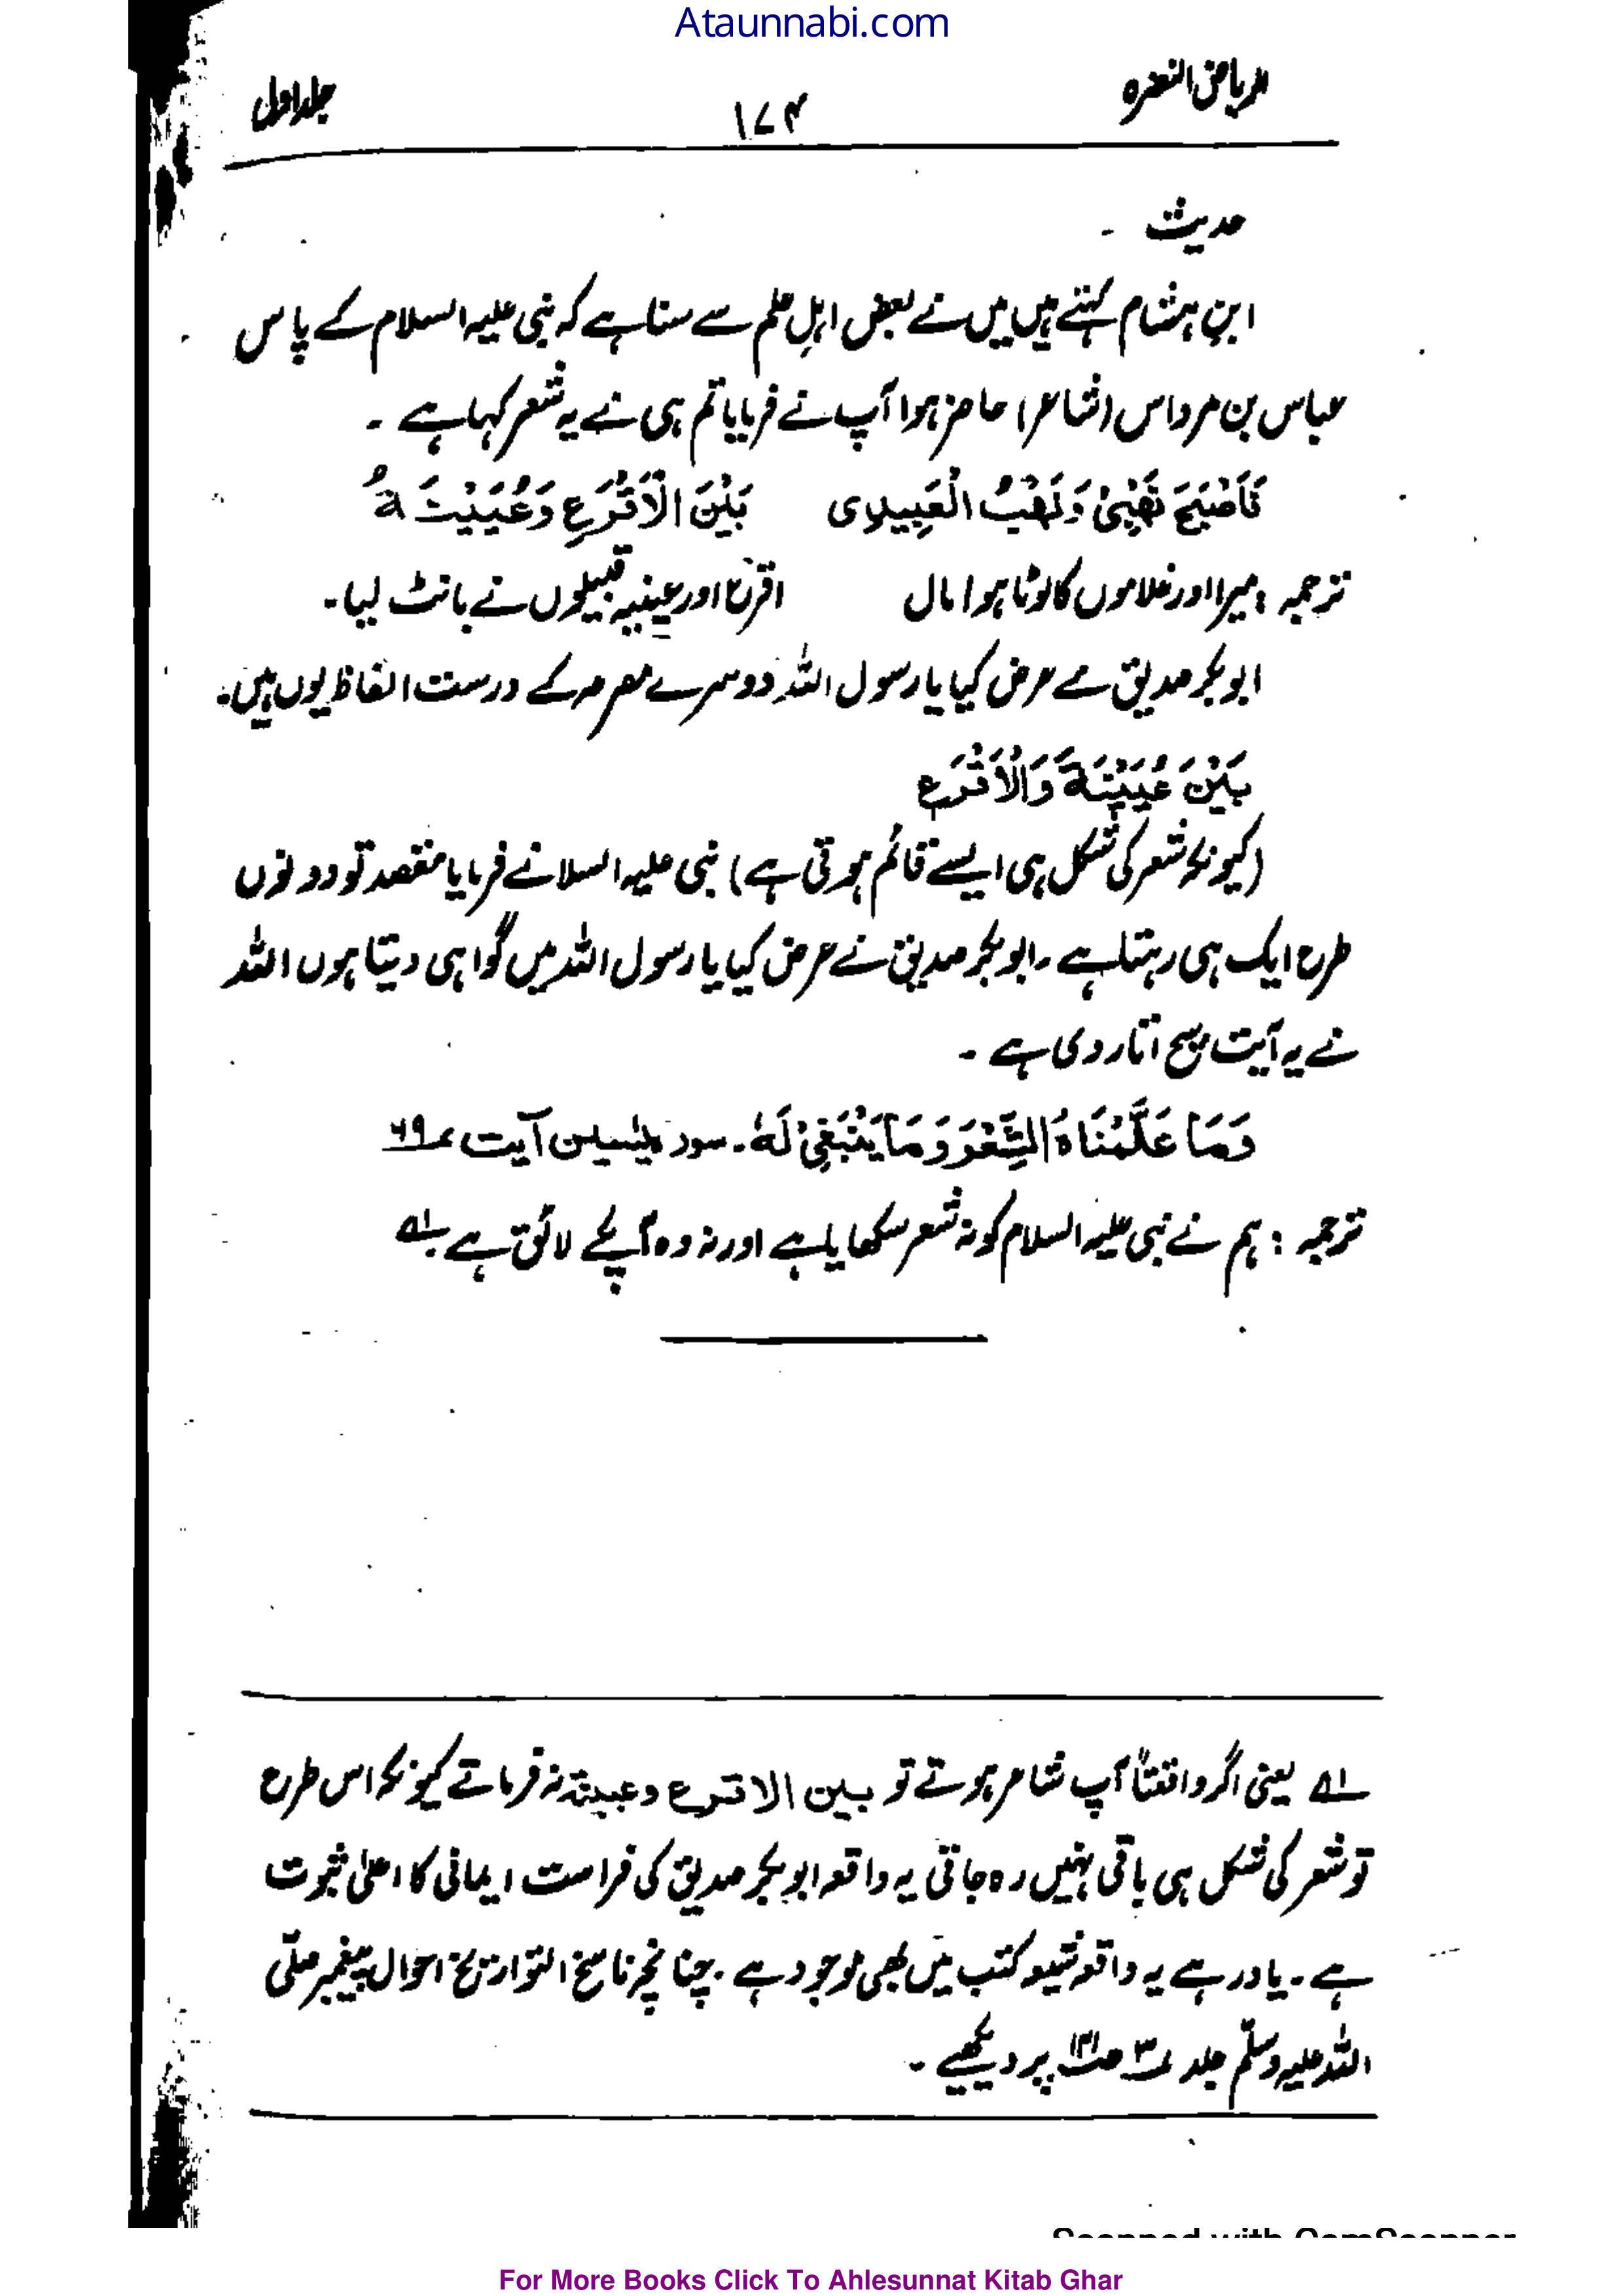 Ataunnabi.com
الریاض النضرہ ۱۷۴ جلد اول
حدیث ۔
ابنِ ہشام کہتے ہیں میں نے بعض اہلِ علم سے سنا ہے کہ نبی علیہ السلام کے پاس
عباس بن مرداس (شاعر) حاضر ہوا آپ نے فرمایا تم ہی نے یہ شعر کہا ہے ۔
فَاَصْبَحَ نَهْبِیْ وَنَهْبُ الْعَبِیدِی بَیْنَ الْاَقْرَعِ وَعُیَیْنَةُ
ترجمہ : میرا اور غلاموں کا لوٹا ہوا مال اقرع اور عینیہ قبیلوں نے بانٹ لیا۔
ابو بکر صدیق نے عرض کیا یا رسول اللہ دوسرے مصرعہ کے درست الفاظ یوں ہیں۔
بَیْنَ عُیَیْنَةَ وَالْاَقْرَعِ
(کیونکہ شعر کی شکل ہی ایسے قائم ہوتی ہے) نبی علیہ السلا نے فرمایا مقصد تو دونوں
طرح ایک ہی رہتا ہے ۔ ابو بکر صدیق نے عرض کیا یا رسول اللہ میں گواہی دیتا ہوں اللہ
نے یہ آیت سچ اتار دی ہے ۔
وَمَا عَلَّمْنَاهُ الشِّعْرَ وَمَا یَنْبَغِیْ لَهٗ۔ سورہ یٰسین آیت ۶۹
ترجمہ : ہم نے نبی علیہ السلام کو نہ شعر سکھایا ہے اور نہ وہ آپکے لائق ہے ۱ے
۱ے یعنی اگر واقعتاً آپ شاعر ہوتے تو بین الاقرع وعیینة نہ فرماتے کیونکہ اس طرح
تو شعر کی شکل ہی باقی نہیں رہ جاتی یہ واقعہ ابو بکر صدیق کی فراست ایمانی کا اعلیٰ ثبوت
ہے ۔ یاد رہے یہ واقعہ شیعہ کتب میں بھی موجود ہے ۔ چنانچہ ناسخ التواریخ احوال پیغمبر صلّی
اللہ علیہ وسلّم جلد ۳ پر دیکھیے ۔
Scanned with CamScanner
For More Books Click To Ahlesunnat Kitab Ghar